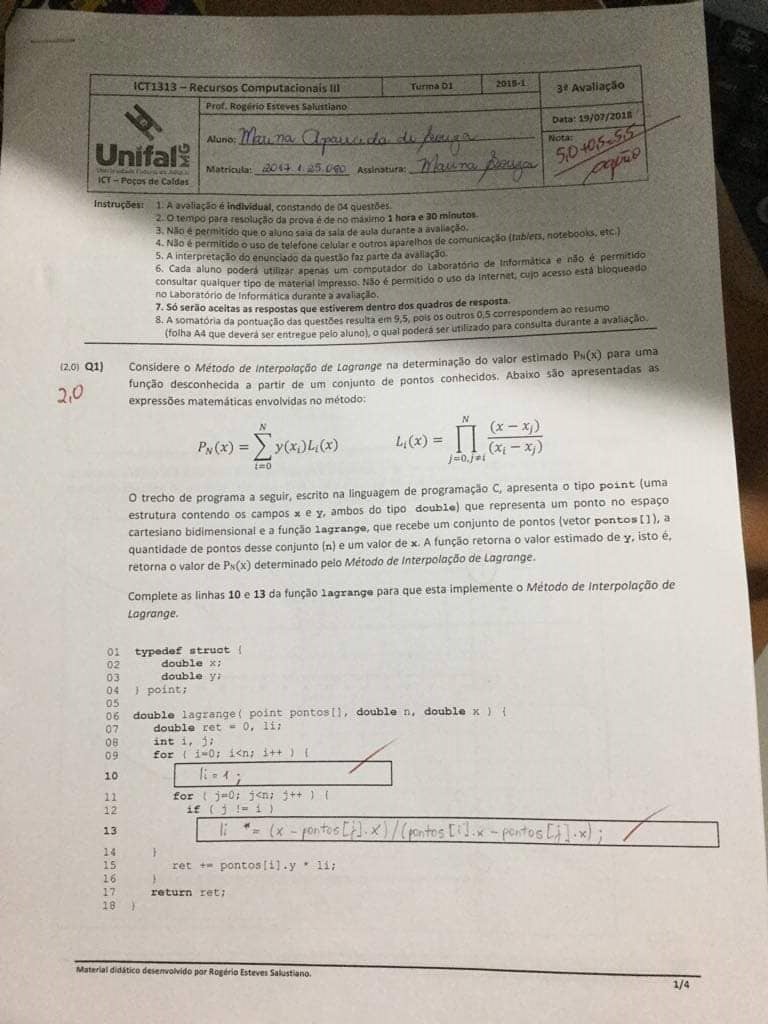 ICT1313 – Recursos Computacionais III
Turma D1
2018-1
3ª Avaliação
Prof. Rogério Esteves Salustiano
Data: 19/07/2018
Unifal MG
ICT – Poços de Caldas
Aluno: Marina Aparecida de Souza
Nota:
5,0+0,5=5,5
Matrícula: 2017.1.25.080 Assinatura: Marina Souza
Instruções: 1. A avaliação é individual, constando de 04 questões.
2. O tempo para resolução da prova é de no máximo 1 hora e 30 minutos.
3. Não é permitido que o aluno saia da sala de aula durante a avaliação.
4. Não é permitido o uso de telefone celular e outros aparelhos de comunicação (tablets, notebooks, etc.)
5. A interpretação do enunciado da questão faz parte da avaliação.
6. Cada aluno poderá utilizar apenas um computador do Laboratório de Informática e não é permitido
consultar qualquer tipo de material impresso. Não é permitido o uso da Internet, cujo acesso está bloqueado
no Laboratório de Informática durante a avaliação.
7. Só serão aceitas as respostas que estiverem dentro dos quadros de resposta.
8. A somatória da pontuação das questões resulta em 9,5, pois os outros 0,5 correspondem ao resumo
(folha A4 que deverá ser entregue pelo aluno), o qual poderá ser utilizado para consulta durante a avaliação.
(2,0) Q1) Considere o Método de Interpolação de Lagrange na determinação do valor estimado PN(x) para uma
2,0
função desconhecida a partir de um conjunto de pontos conhecidos. Abaixo são apresentadas as
expressões matemáticas envolvidas no método:
P_N(x) = ∑_{i=0}^{N} y(x_i)L_i(x)
L_i(x) = ∏_{j=0,j≠i}^{N} (x − x_j)/(x_i − x_j)
O trecho de programa a seguir, escrito na linguagem de programação C, apresenta o tipo point (uma
estrutura contendo os campos x e y, ambos do tipo double) que representa um ponto no espaço
cartesiano bidimensional e a função lagrange, que recebe um conjunto de pontos (vetor pontos[]), a
quantidade de pontos desse conjunto (n) e um valor de x. A função retorna o valor estimado de y, isto é,
retorna o valor de PN(x) determinado pelo Método de Interpolação de Lagrange.
Complete as linhas 10 e 13 da função lagrange para que esta implemente o Método de Interpolação de
Lagrange.
01 typedef struct {
02 double x;
03 double y;
04 } point;
05
06 double lagrange( point pontos[], double n, double x ) {
07 double ret = 0, li;
08 int i, j;
09 for ( i=0; i<n; i++ ) {
10 li = 1;
11 for ( j=0; j<n; j++ ) {
12 if ( j != i )
13 li *= (x - pontos[j].x)/(pontos[i].x - pontos[j].x);
14 }
15 ret += pontos[i].y * li;
16 }
17 return ret;
18 }
Material didático desenvolvido por Rogério Esteves Salustiano.
1/4